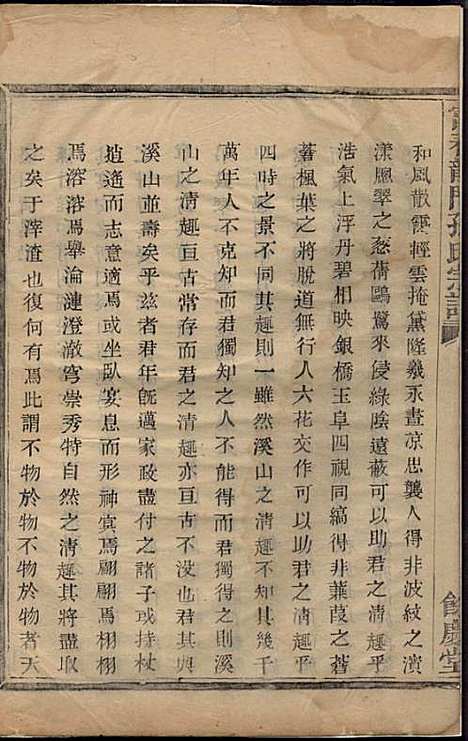 富春龍門孫氏宗譜
餘慶堂
和風散霧輕雲掩黛隆羲永晝凉思襲人得非波紋之演
漾風翠之葱蒨鷗鷺來侵綠陰遠蔽可以助君之清趣乎
浩氣上浮丹碧相映銀橋玉阜四視同縞得非蒹葭之蒼
蒼楓葉之將脫道無行人六花交作可以助君之清趣乎
四時之景不同其趣則一雖然溪山之清趣不知其幾千
萬年人不克知而君獨知之人不能得而君獨得之則溪
山之清趣亘古常存而君之清趣亦亘古不沒也君其與
溪山並壽矣乎茲者君年旣邁家政盡付之諸子或持杖
逍遙而志意適焉或坐臥宴息而形神宜焉翩翩焉栩栩
焉溶溶焉舉淪漣澄澈穹崇秀特自然之清趣其將盡取
之矣于滓渣也復何有焉此謂不物於物不物於物者天